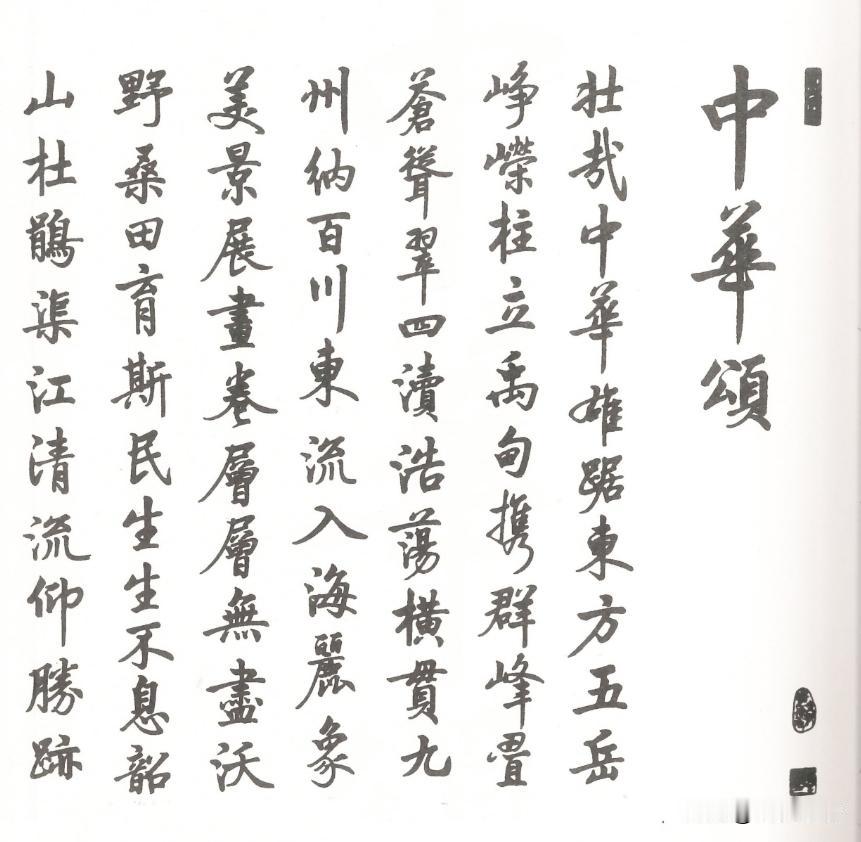 中華頌
壯哉中華雄踞東方五岳
峥嶸柱立禹甸携群峰疊
蒼聳翠四瀆浩蕩橫貫九
州納百川東流入海麗象
美景展畫卷層層無盡沃
野桑田育斯民生生不息韶
山杜鵑渠江清流仰勝跡